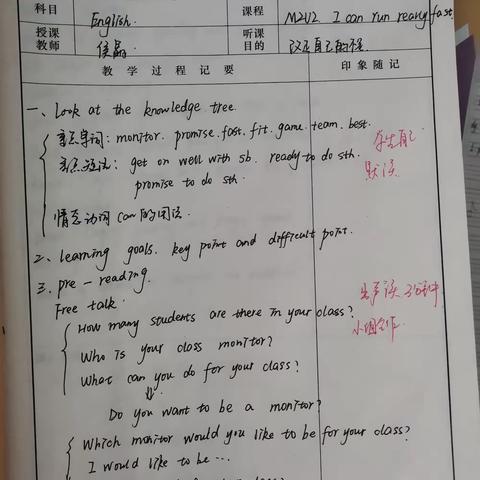 科目 English. 课程 M2U2 I can run really fast.
授课教师 侯晶 听课目的 改正自己的不足
教学过程记要 印象随记
一、Look at the knowledge tree.
重点单词: monitor. promise. fast. fit. game. team. best. 学生自己
重点短语: get on well with sb. ready to do sth. 默读
promise to do sth.
情态动词 can 的用法.
2、learning goals. key point and difficult point.
三. pre-reading.
Free talk.
How many students are there in your class?
Who is your class monitor? 小组合作
What can you do for your class?
Do you want to be a monitor?
Which monitor would you like to be for your class?
I would like to be ...